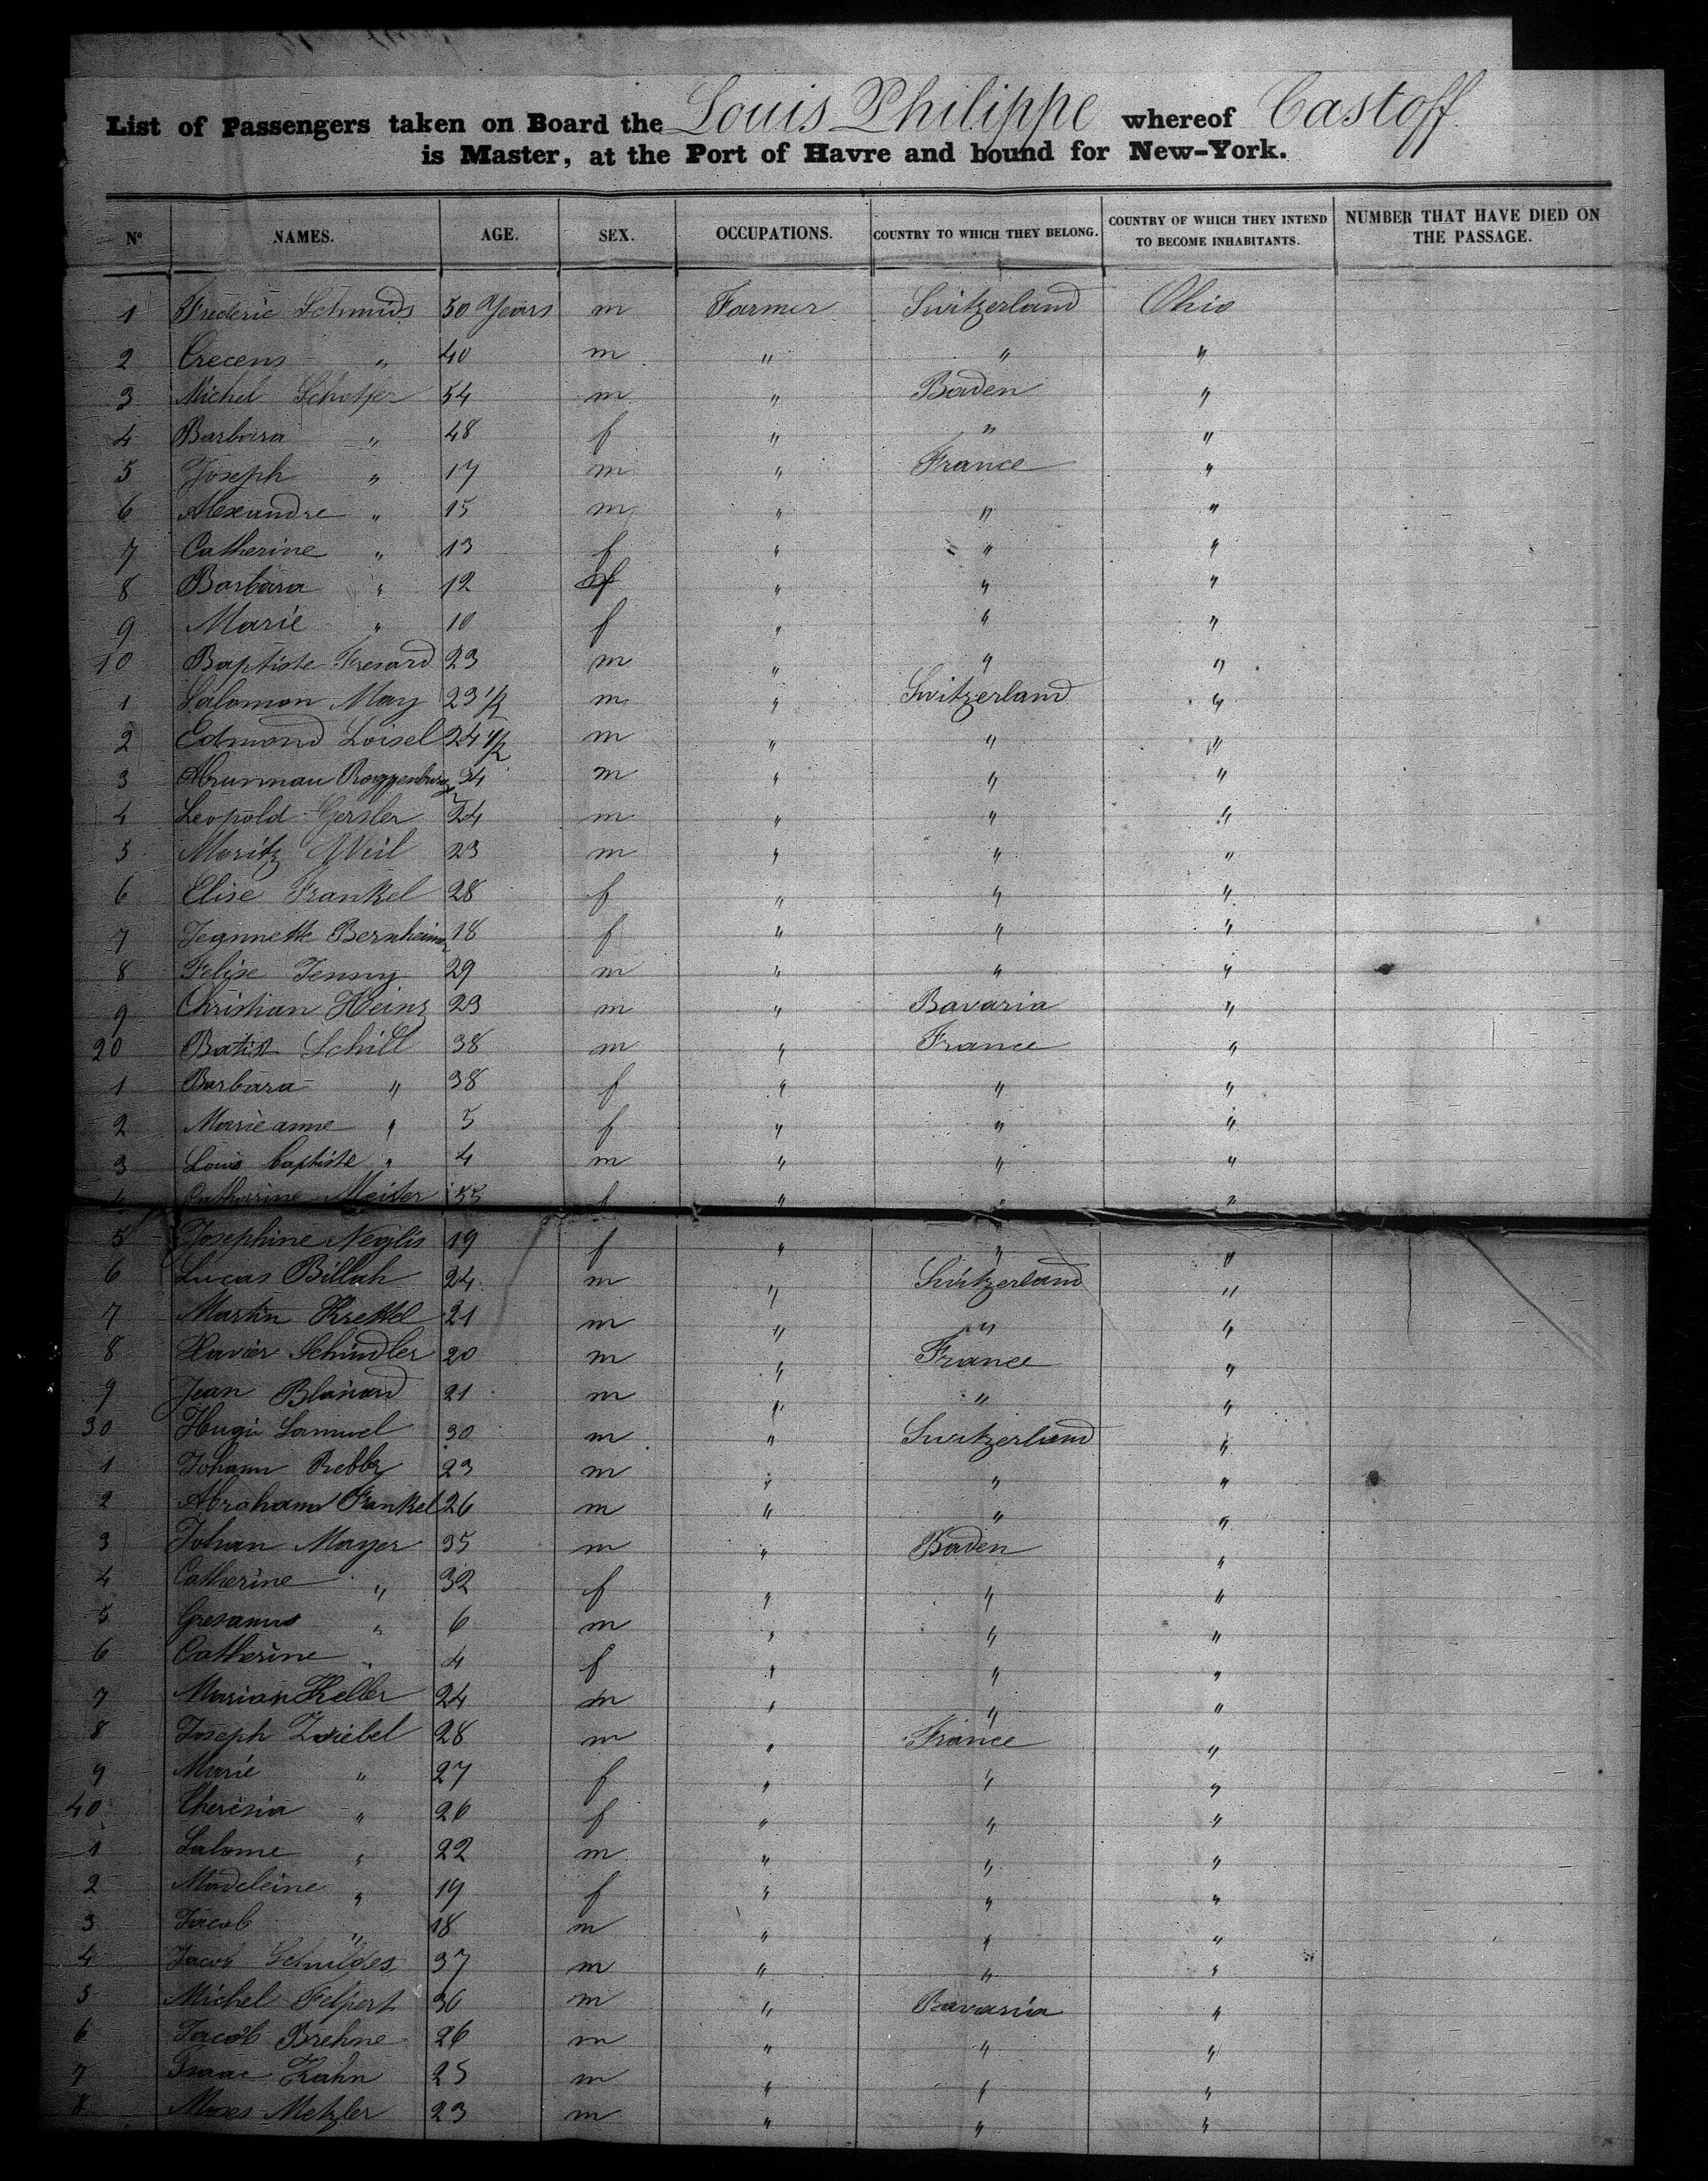 List of Passengers taken on Board the Louis Philippe whereof Castoff
is Master, at the Port of Havre and bound for New-York.
Nº NAMES. AGE. SEX. OCCUPATIONS. COUNTRY TO WHICH THEY BELONG. COUNTRY OF WHICH THEY INTEND TO BECOME INHABITANTS. NUMBER THAT HAVE DIED ON THE PASSAGE.
1 Frederic Schmids 50 Years m Farmer Switzerland Ohio
2 Crecens " 40 m " " "
3 Michel 54 m " Baden "
4 Barbara " 48 f " " "
5 Joseph " 17 m " France "
6 Alexandre " 15 m " " "
7 Catherine " 13 f " " "
8 Barbara " 12 f " " "
9 Marie " 10 f " " "
10 Baptiste Fresard 23 m " " "
1 Salomon May 23 1/2 m " Switzerland "
2 Edmond Loisel 24 1/2 m " " "
3 Roggenburg 34 m " " "
4 Leopold Gersler 24 m " " "
5 Moritz Weil 23 m " " "
6 Elise Frankel 28 f " " "
7 Jeannette Bernheim 18 f " " "
8 Felise Jenny 29 m " " "
9 Christian Heinz 23 m " Bavaria "
20 Batist Schill 38 m " France "
1 Barbara " 38 f " " "
2 Marieanne " 5 f " " "
3 Louis baptiste " 4 m " " "
4 Catharine Meister 55 f " " "
5 Josephine 19 f " " "
6 Lucas Billah 24 m " Switzerland "
7 Martin Krettel 21 m " " "
8 Xavier Schindler 20 m " France "
9 Jean 21 m " " "
30 Hugi Samuel 30 m " Switzerland "
1 Johann 23 m " " "
2 Abraham Frankel 26 m " " "
3 Johan Mayer 35 m " Baden "
4 Catherine " 32 f " " "
5 " 6 m " " "
6 Catherine " 4 f " " "
7 Marian Keller 24 m " " "
8 Joseph Zwiebel 28 m " France "
9 Marie " 27 f " " "
40 Theresia " 26 f " " "
1 Salome " 22 m " " "
2 Madeleine " 19 f " " "
3 Jacob " 18 m " " "
4 Jacob Schuldes 37 m " " "
5 Michel Filpert 36 m " Bavaria "
6 Jacob Brehne 26 m " " "
7 Isaac Kahn 25 m " " "
8 Moses Metzler 23 m " " "